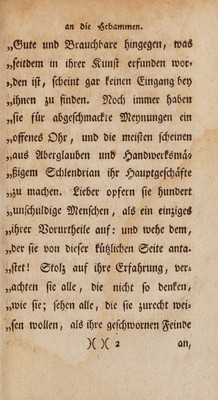 an die Hebammen.
„Gute und Brauchbare hingegen, was
„seitdem in ihrer Kunst erfunden wor-
„den ist, scheint gar keinen Eingang bey
„ihnen zu finden. Noch immer haben
„sie für abgeschmackte Meynungen ein
„offenes Ohr, und die meisten scheinen
„aus Aberglauben und Handwerksmä-
„ßigem Schlendrian ihr Hauptgeschäfte
„zu machen. Lieber opfern sie hundert
„unschuldige Menschen, als ein einziges
„ihrer Vorurtheile auf: und wehe dem,
„der sie von dieser kützlichen Seite anta-
„stet! Stolz auf ihre Erfahrung, ver-
„achten sie alle, die nicht so denken,
„wie sie; sehen alle, die sie zurecht wei-
„sen wollen, als ihre geschwornen Feinde
)( )( 2 an,